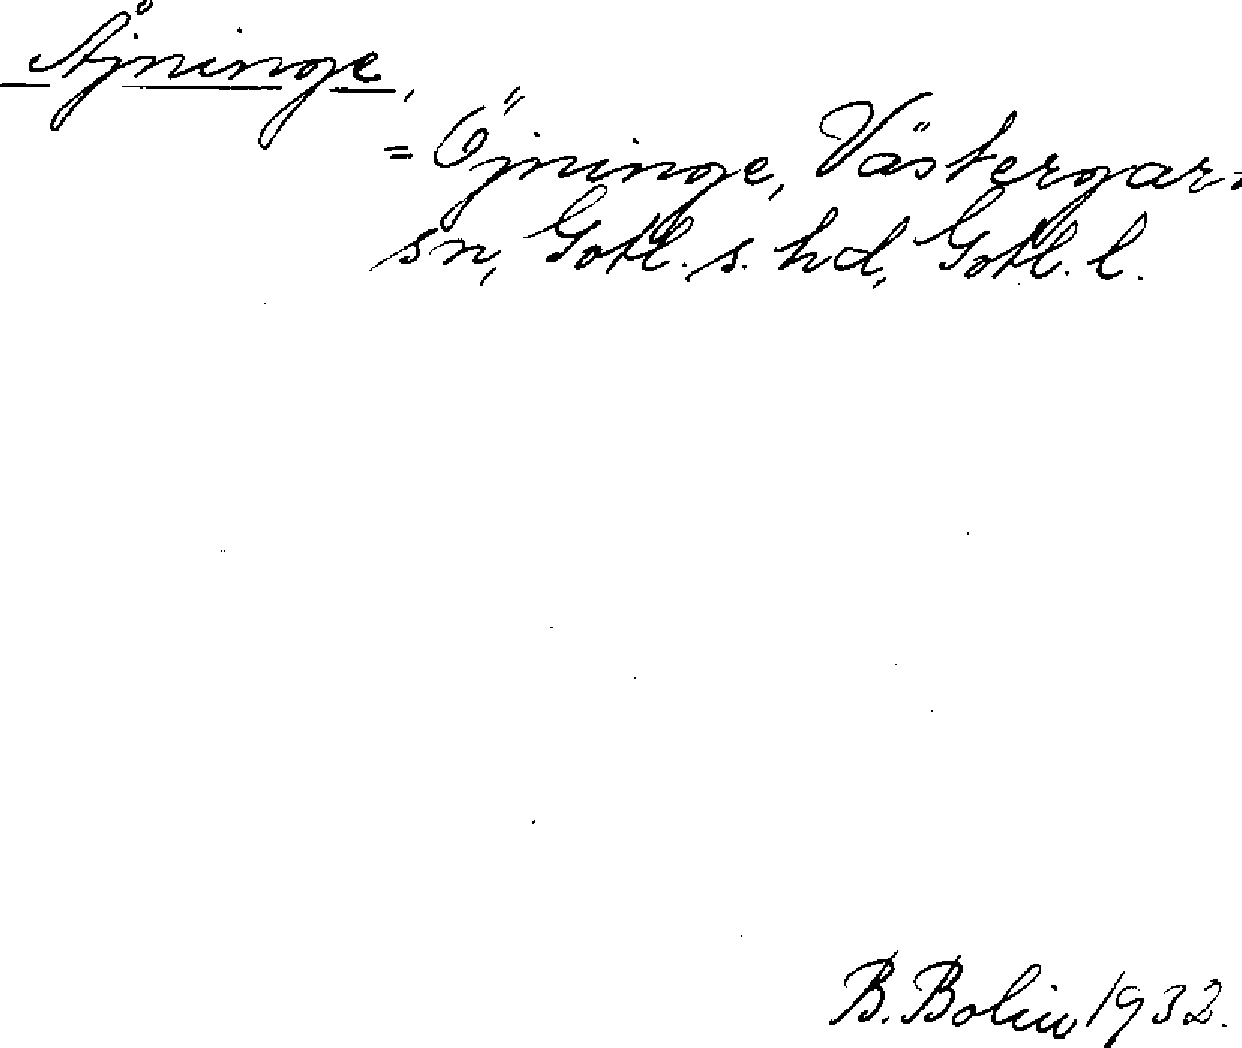 Åjninge,
= Öjninge, Västergar-
sn, Gotl. s. hd, Gotl. l.
B. Bolin 1932.